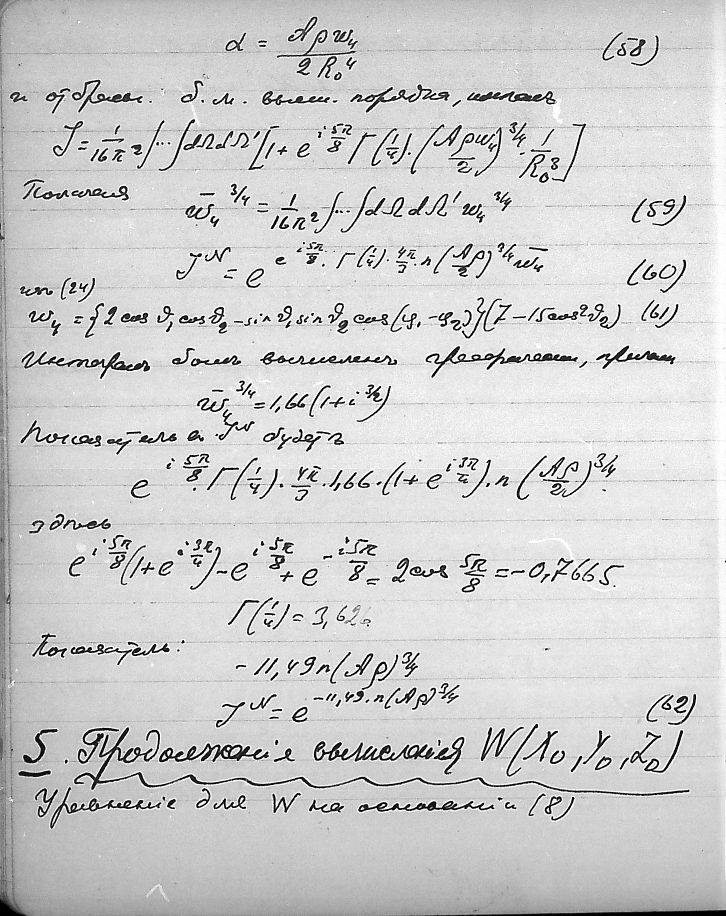 α = Aρw₄ / 2R₀⁴ (58)
и отбрас. б.м. высш. порядка, имеемъ
J = 1/16π² ∫...∫ dΩdΩ' [1 + e^{i 5π/8} Γ(1/4)·(Aρw₄/2)^{3/4}·1/R₀³]
Полагая w̄₄^{3/4} = 1/16π² ∫...∫ dΩ dΩ' w₄^{3/4} (59)
J^N = e^{e^{i 5π/8}·Γ(1/4)·4π/3·n(Aρ/2)^{3/4} w̄₄} (60)
(24)
w₄ = {2cosϑ₁cosϑ₂ - sinϑ₁sinϑ₂cos(φ₁-φ₂)}²(7-15cos²ϑ₂) (61)
Интегралъ былъ вычисленъ графически,
w̄₄^{3/4} = 1,66(1+i^{3/2})
Показатель въ J^N будетъ
e^{i 5π/8}·Γ(1/4)·4π/3·1,66·(1+e^{i 3π/4})·n(Aρ/2)^{3/4}
здѣсь
e^{i 5π/8}(1+e^{i 3π/4}) - e^{i 5π/8} + e^{-i 5π/8} = 2cos 5π/8 = -0,7665.
Γ(1/4) = 3,626
Показатель:
-11,49n(Aρ)^{3/4}
J^N = e^{-11,49·n(Aρ)^{3/4}} (62)
5. Продолженіе вычисленія W(X₀,Y₀,Z₀)
Уравненіе для W на основаніи (8)